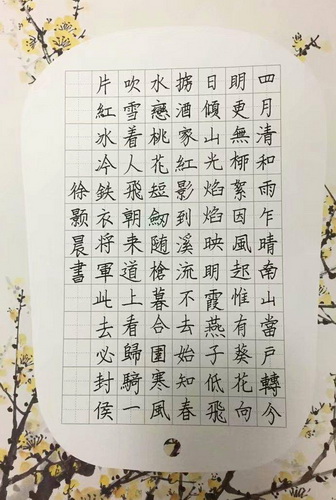 四月清和雨乍晴南山當戶轉今
明更無柳絮因風起惟有葵花向
日傾山光焰焰映明霞燕子低飛
掠酒家紅影到溪流不去始知春
水戀桃花短劒随槍暮合圍寒風
吹雪着人飛朝来道上看歸騎一
片紅冰冷鉄衣将軍此去必封侯
徐颢晨書